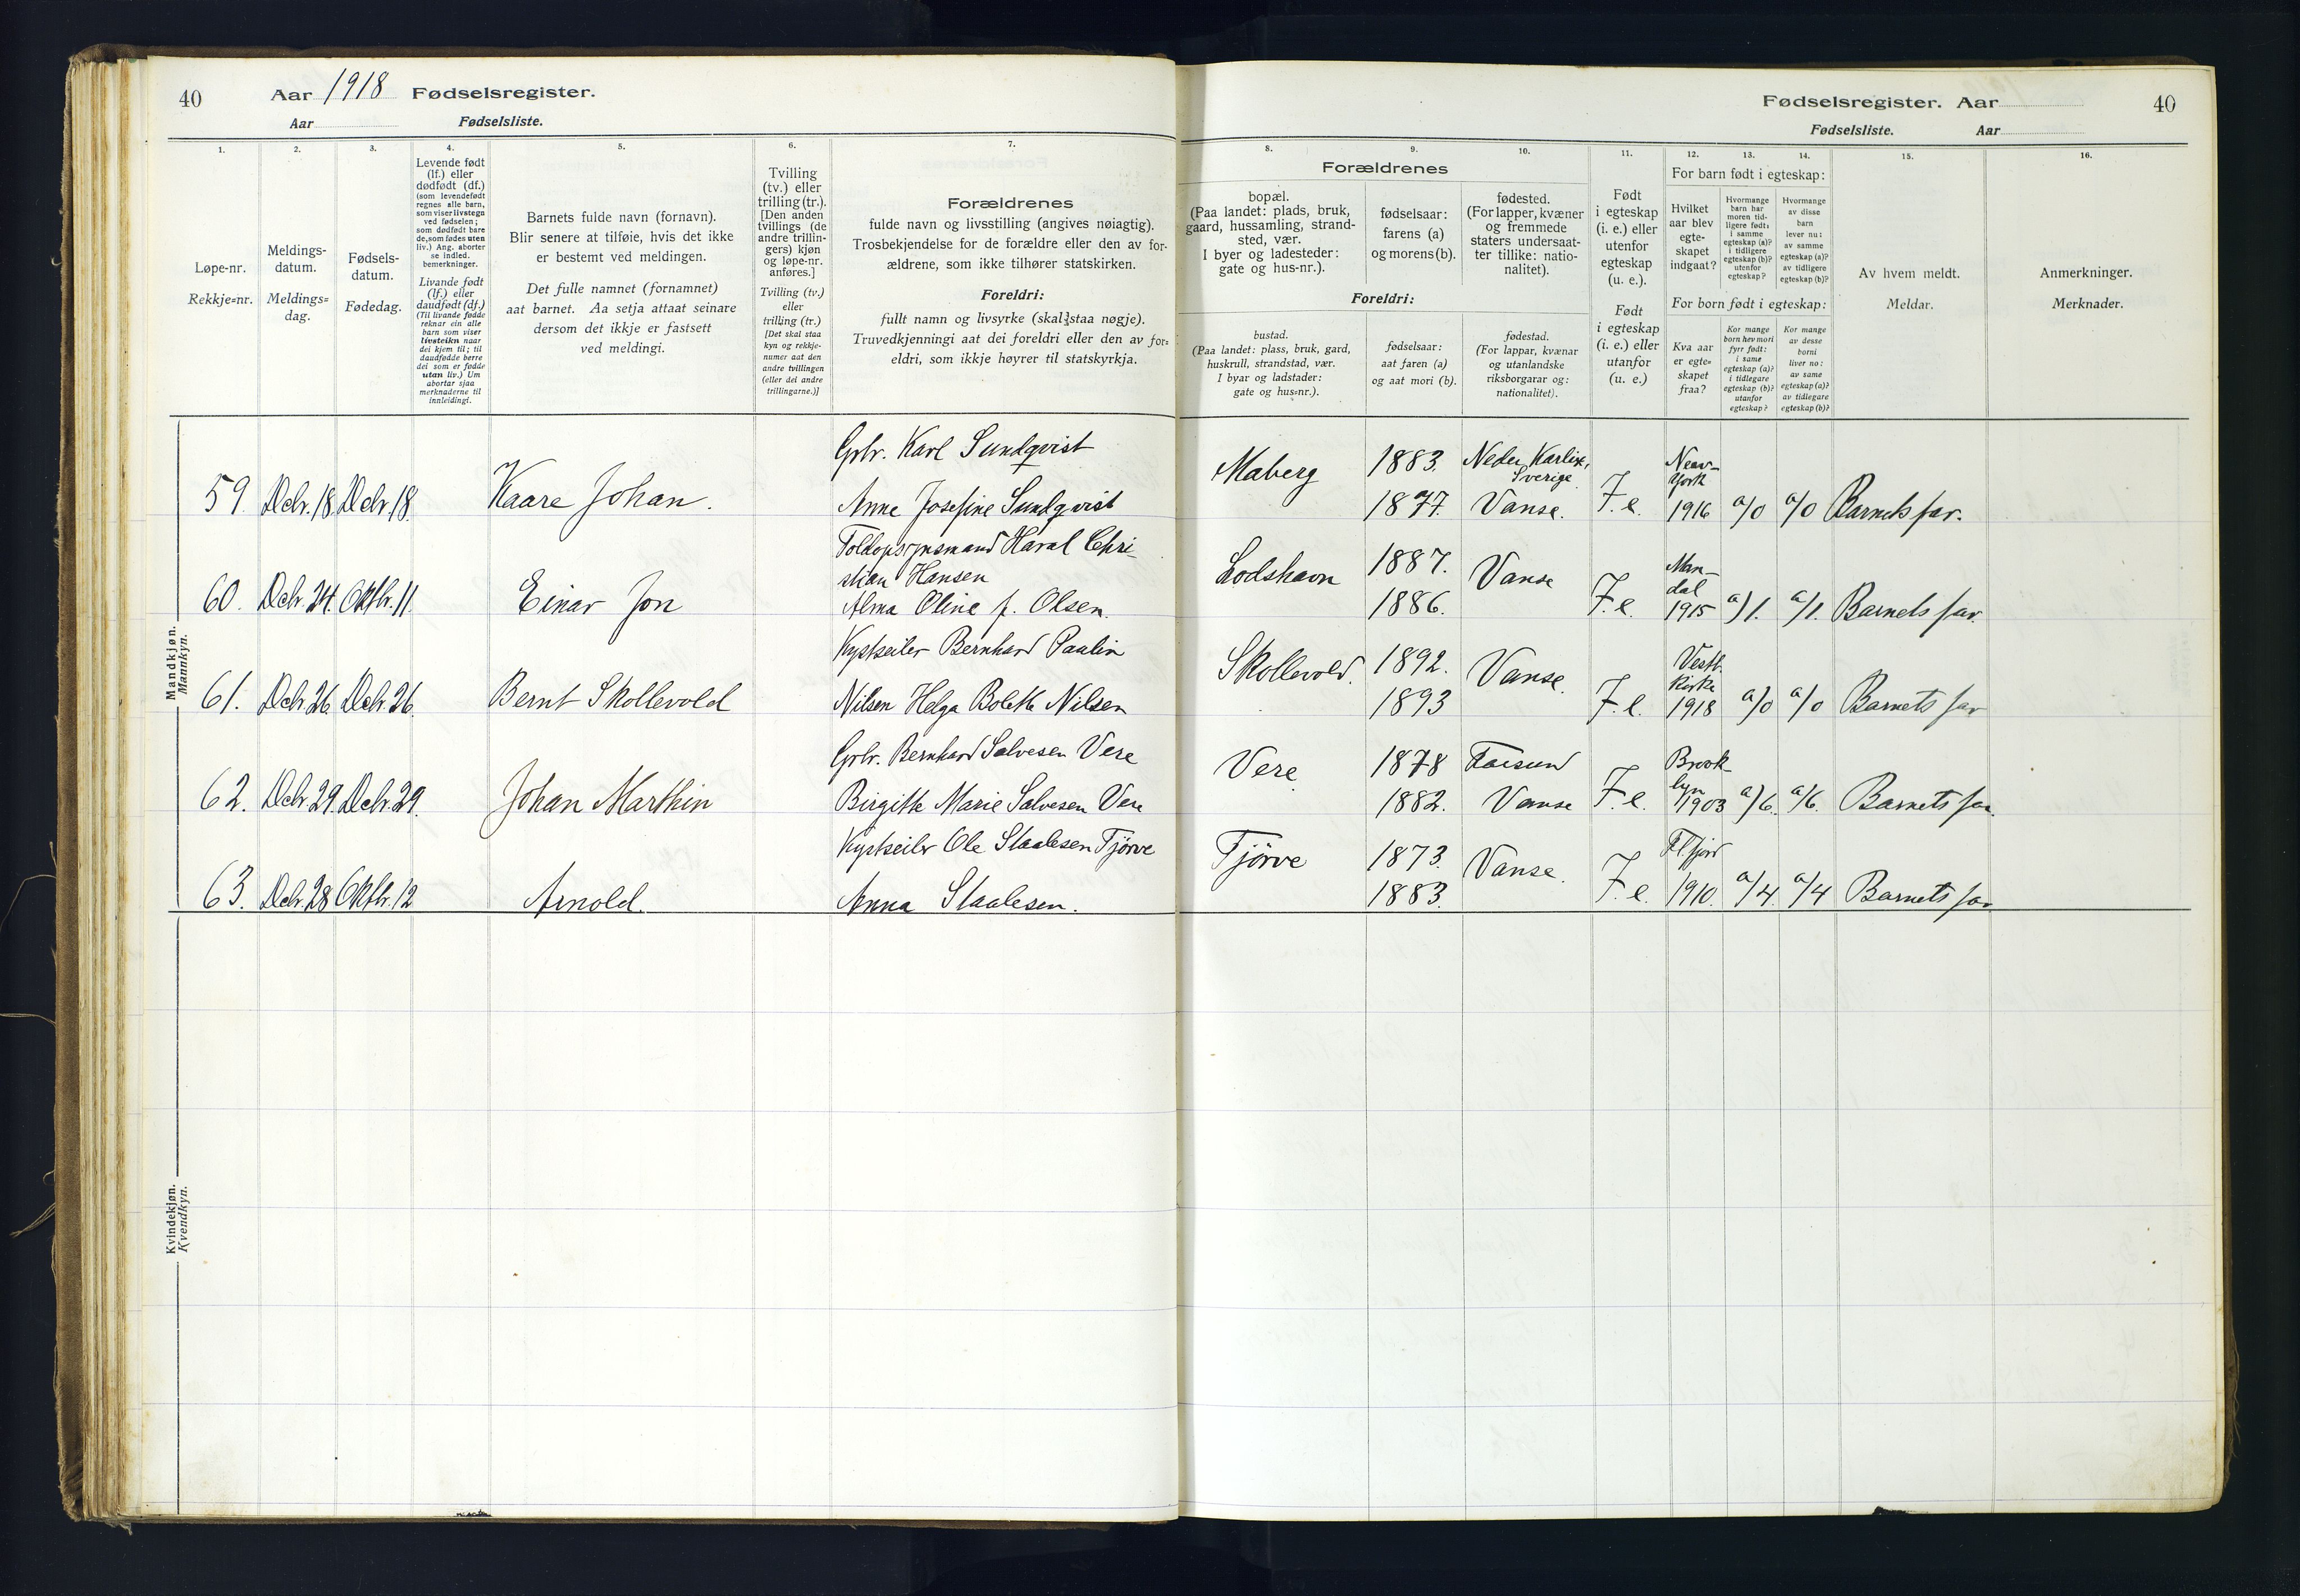 40 Aar 1918 Fødselsregister.
Aar Fødselsliste.
Fødselsregister. Aar 40
Fødselsliste. Aar
1. 2. 3. 4. 5. 6. 7. 8. 9. 10. 11. 12. 13. 14. 15. 16.
Løpe-nr.
Rekkje=nr.
Meldings-
datum.
Meldings=
dag.
Fødsels-
datum.
Fødedag.
Levende født
(lf.) eller
dødfødt (df.)
(som levendefødt
regnes alle barn,
som viser livstegn
ved fødselen;
som dødfødt bare
de, som fødes uten
liv.) Ang. aborter
se indled.
bemerkninger.
Livande født
(lf.) eller
daudfødt (df.)
(Til livande fødde
reknar ein alle
barn som viser
livsteikn naar
dei kjem til; til
daudfødde berre
dei som er fødde
utan liv.) Um
abortar sjaa
merknaderne til
innleidingi.
Barnets fulde navn (fornavn).
Blir senere at tilføie, hvis det ikke
er bestemt ved meldingen.
Det fulle namnet (fornamnet)
aat barnet. Aa setja attaat seinare
dersom det ikkje er fastsett
ved meldingi.
Tvilling
(tv.) eller
trilling (tr.).
[Den anden
tvillings (de
andre trillin-
gers) kjøn
og løpe-nr.
anføres.]
Tvilling (tv.)
eller
trilling (tr.)
[Det skal staa
kyn og rekkje-
numer aat den
andre tvillingen
(eller dei andre
trillingarne.)]
Forældrenes
fulde navn og livsstilling (angives nøiagtig).
Trosbekjendelse for de forældre eller den av for-
ældrene, som ikke tilhører statskirken.
Foreldri:
fullt namn og livsyrke (skal staa nøgje).
Truvedkjenningi aat dei foreldri eller den av for=
eldri, som ikkje høyrer til statskyrkja.
Forældrenes
bopæl.
(Paa landet: plads, bruk,
gaard, hussamling, strand-
sted, vær.
I byer og ladesteder:
gate og hus-nr.).
fødselsaar:
farens (a)
og morens (b).
fødested.
(For lapper, kvæner
og fremmede
staters undersaat-
ter tillike: natio-
nalitet).
Foreldri:
bustad.
(Paa landet: plass, bruk, gard,
huskrull, strandstad, vær.
I byar og ladstader:
gate og hus=nr.).
fødselsaar:
aat faren (a)
og aat mori (b).
fødestad.
(For lappar, kvænar
og utanlandske
riksborgarar og:
nationalitet).
Født
i egteskap
(i. e.) eller
utenfor
egteskap
(u. e.).
Født
i egteskap
(i. e.) eller
utanfor
(u. e.)
For barn født i egteskap:
Hvilket
aar blev
egte-
skapet
indgaat?
Hvormange
barn har
moren tid-
ligere født:
i samme
egteskap (a)?
i tidligere
egteskap (b)?
utenfor
egteskap?
Hvormange
av disse
barn
lever nu:
av samme
egteskap (a)?
av tidligere
egteskap (b)?
For born født i egteskap:
Kva aar
er egte=
skapet
fraa?
Kor mange
born hev mori
fyrr født:
i same
egteskap (a)?
i tidlegare
egteskap (b)?
utanfor
egteskap?
Kor mange
av desse
borni
liver no:
av same
egteskap (a)?
av tidlegare
egteskap (b)?
Av hvem meldt.
Meldar.
Anmerkninger.
Merknader.
Mandkjøn.
Mannkyn.
Grbr. Karl Sundqvist
59. Dcbr. 18. Dcbr. 18. Kaare Johan. Anne Josefine Sundqvist
Maberg 1883. Neder Karlix, Sverige
1877. Vanse. F. e. New-York 1916 a/0 a/0 Barnets far.
Toldopsynsmand Haral Chri-
stian Hansen
60. Dcbr. 24. Oktbr. 11. Einar Jon Alma Oline f. Olsen.
Lodshavn 1887. Vanse
1886. F. e. Man-dal 1915 a/1. a/1. Barnets far.
Kystseiler Bernhard Paulin
61. Dcbr. 26 Dcbr. 26. Bernt Skollevold Nilsen Helga Bolette Nilsen
Skollevold. 1892. Vanse.
1893 F. e. Vestb. Kirke 1918 a/0 a/0 Barnets far
Grbr. Bernhard Salvesen Vere
62. Dcbr. 29. Dcbr. 29. Johan Marthin Birgitte Marie Salvesen Vere
Vere 1878 Farsund
1882. Vanse F. e. Brook-lyn 1903 a/6. a/6. Barnets far.
Kystseiler Ole Staalesen Tjörve
63. Dcbr. 28 Oktbr. 12 Arnold. Anna Staalesen.
Tjörve 1873. Vanse.
1883. F. e. Fl.fjord 1910. a/4. a/4 Barnets far
Kvindekjøn.
Kvendkyn.